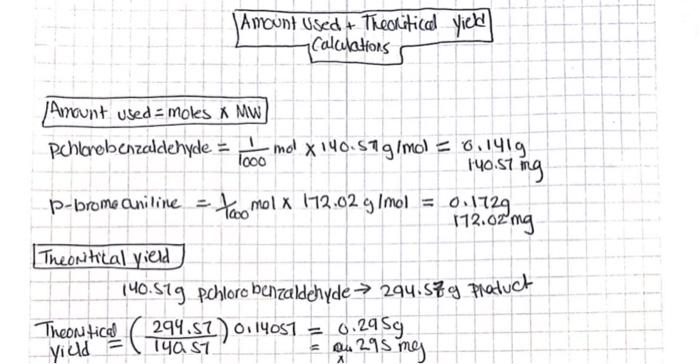 Amount Used + Theoritical yield
Calculations
Amount used = moles x MW
pchlorobenzaldehyde = 1/1000 mol x 140.57g/mol = 0.141g
140.57 mg
p-bromoaniline = 1/1000 mol x 172.02 g/mol = 0.172g
172.02 mg
Theoritical yield
140.57g pchlorobenzaldehyde → 294.57g product
Theoritical yield = (294.57/140.57) 0.14057 = 0.295g
= 295 mg